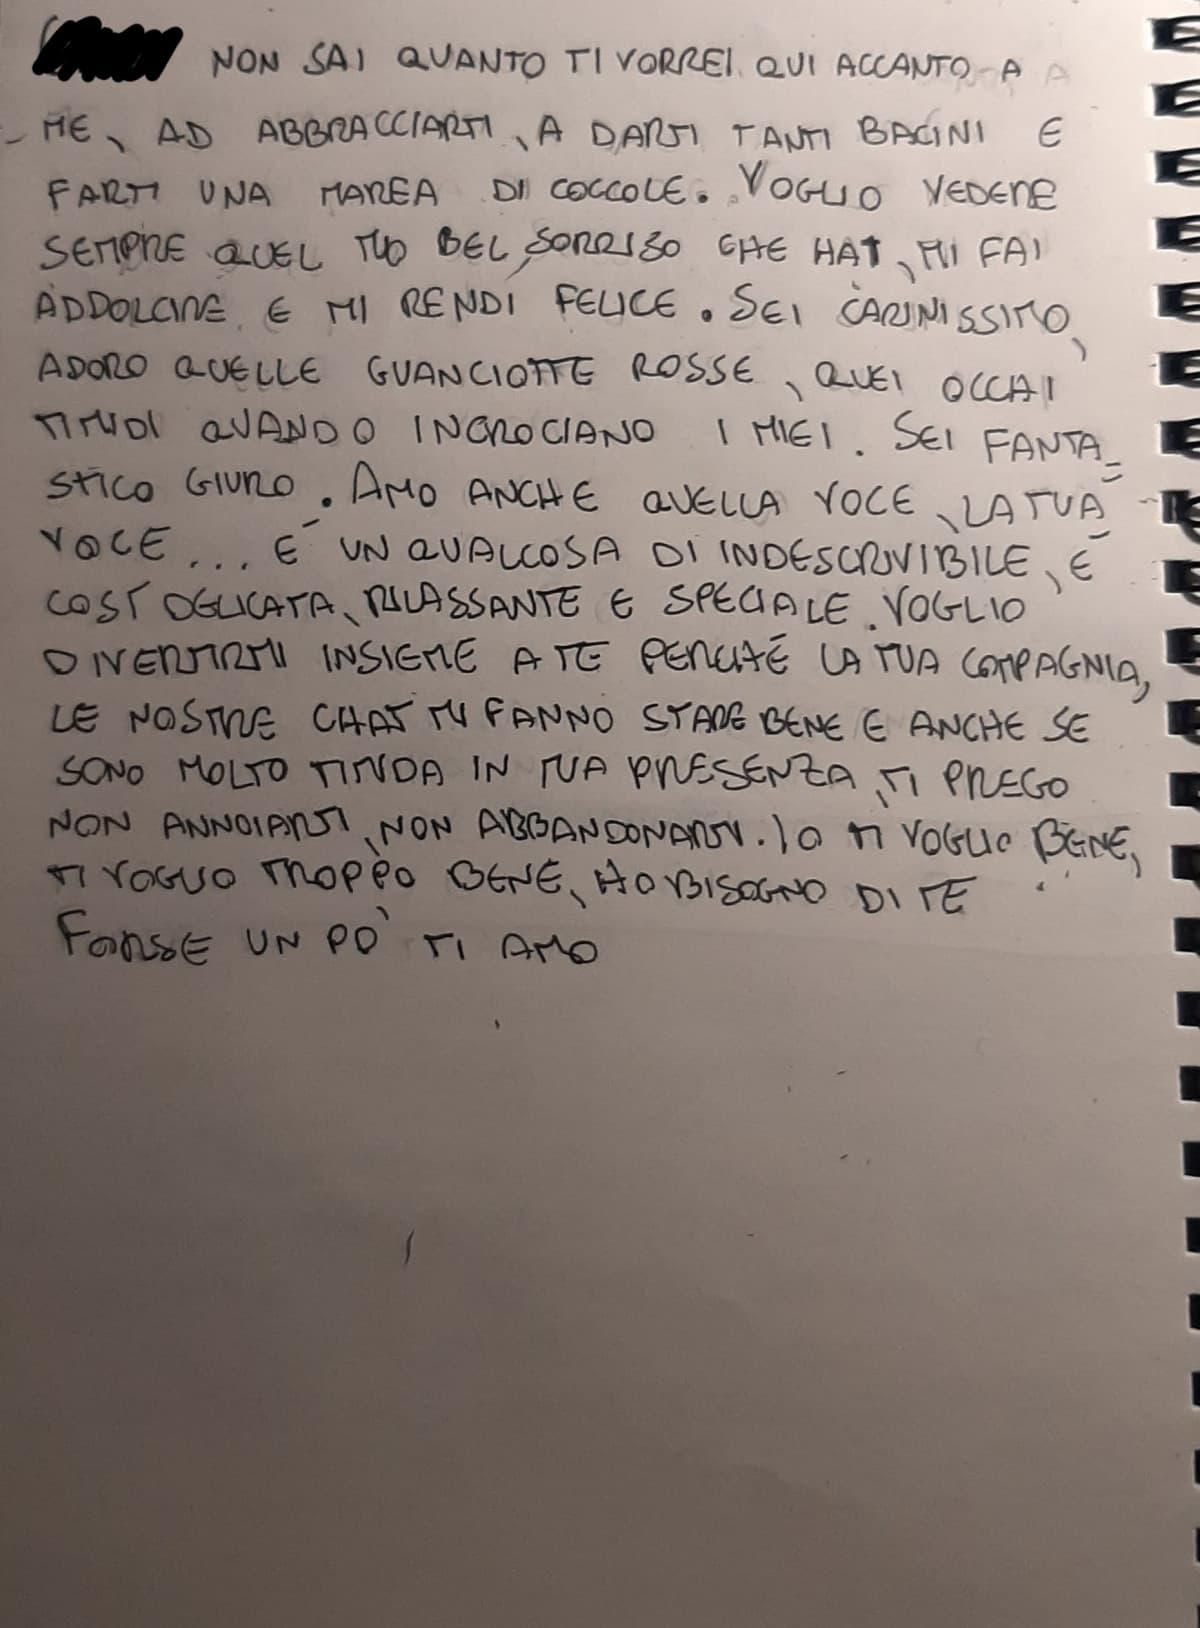 NON SAI QUANTO TI VORREI QUI ACCANTO A A
ME, AD ABBRACCIARTI, A DARTI TANTI BACINI E
FARTI UNA MAREA DI COCCOLE. VOGLIO VEDERE
SEMPRE QUEL TUO BEL SORRISO CHE HAI, MI FAI
ADDOLCIRE E MI RENDI FELICE. SEI CARINISSIMO,
ADORO QUELLE GUANCIOTTE ROSSE, QUEI OCCHI
TIMIDI QUANDO INCROCIANO I MIEI. SEI FANTA=
STICO GIURO. AMO ANCHE QUELLA VOCE, LA TUA
VOCE... È UN QUALCOSA DI INDESCRIVIBILE, È
COSÌ DELICATA, RILASSANTE E SPECIALE. VOGLIO
DIVERTIRMI INSIEME A TE PERCHÉ LA TUA COMPAGNIA,
LE NOSTRE CHAT MI FANNO STARE BENE E ANCHE SE
SONO MOLTO TIMIDA IN TUA PRESENZA, TI PREGO
NON ANNOIARTI, NON ABBANDONARMI. IO TI VOGLIO BENE,
TI VOGLIO TROPPO BENE, HO BISOGNO DI TE
FORSE UN PO' TI AMO